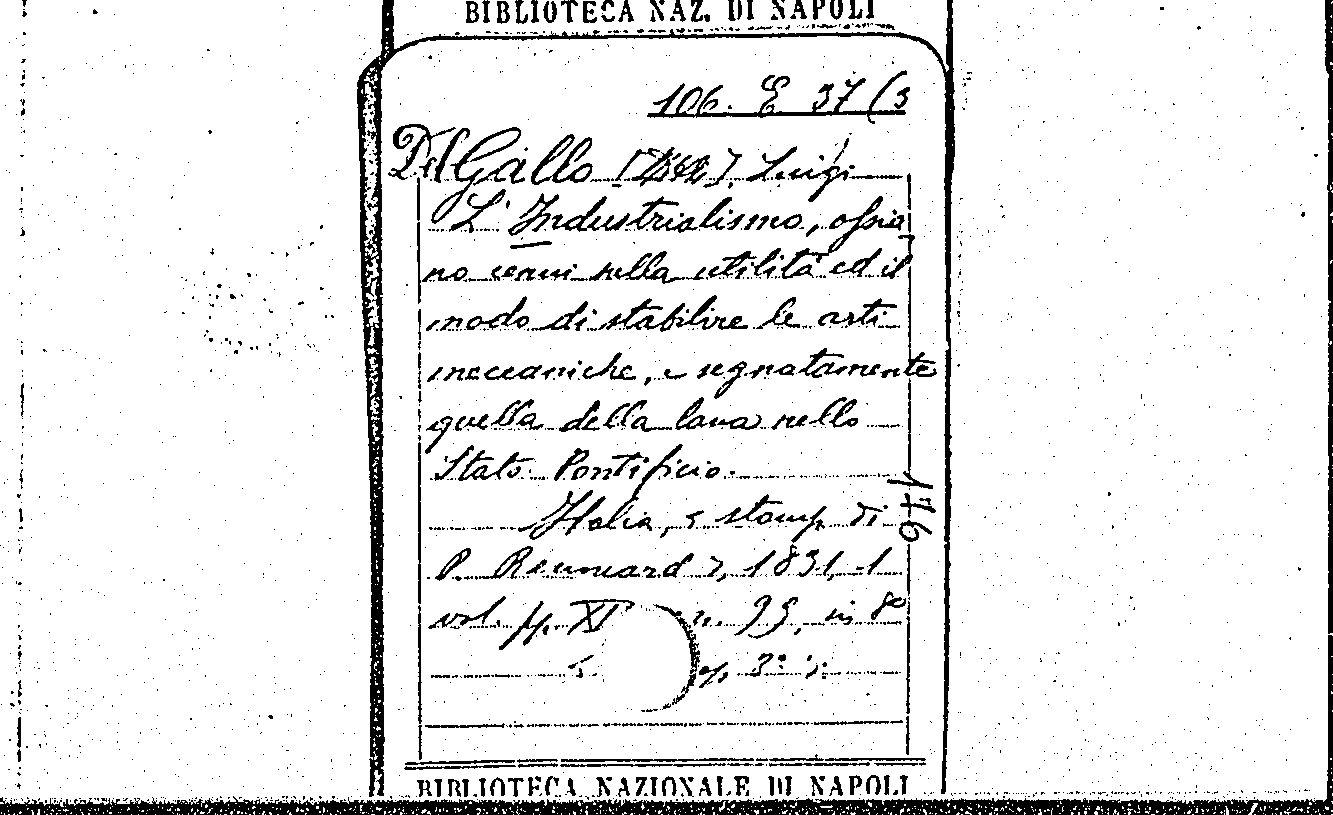 BIBLIOTECA NAZ. DI NAPOLI
106. E 37 (3
Del Gallo Luigi
L' Industrialismo, ossia
no cenni sulla utilità ed il
modo di stabilire le arti
meccaniche, e segnatamente
quella della lana nello
Stato Pontificio.
Italia, < stamp. di
P. >, 1831, 1
vol. pp. XI n. 99, in 8º
3º
176
BIBLIOTECA NAZIONALE DI NAPOLI